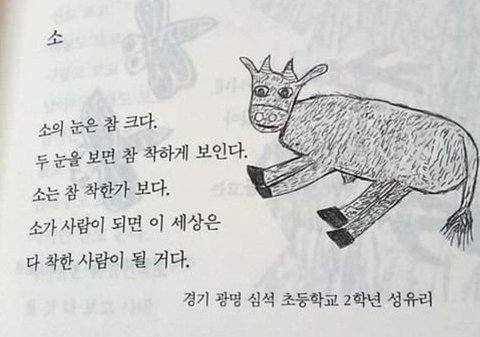 소
소의 눈은 참 크다.
두 눈을 보면 참 착하게 보인다.
소는 참 착한가 보다.
소가 사람이 되면 이 세상은
다 착한 사람이 될 거다.
경기 광명 심석 초등학교 2학년 성유리